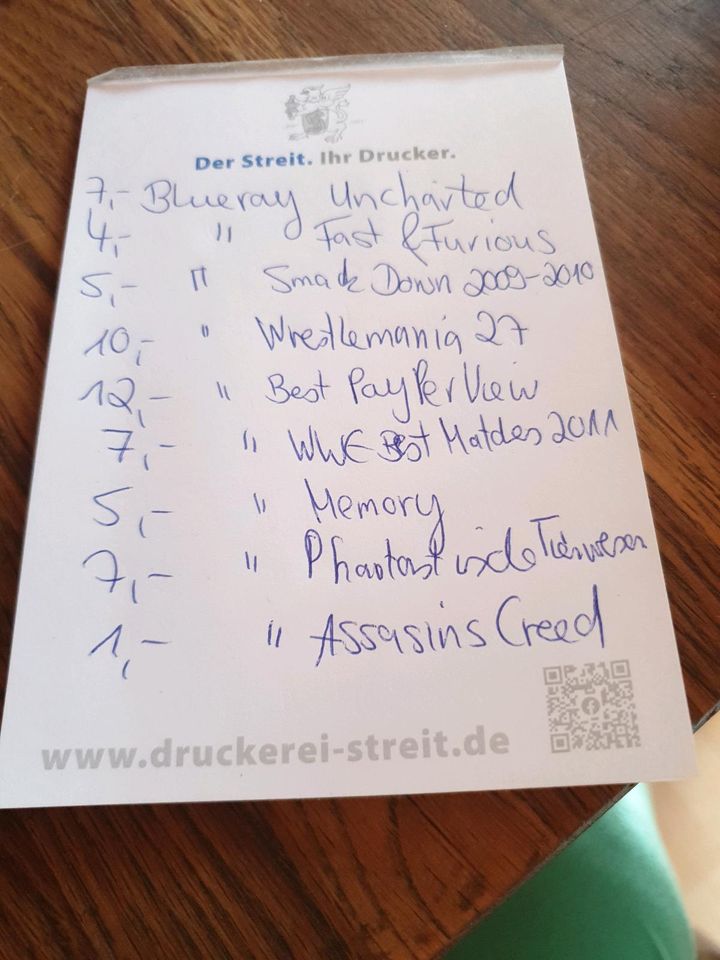 Der Streit. Ihr Drucker.
7,- Blueray Uncharted
4,- " Fast & Furious
5,- " Smack Down 2009-2010
10,- " Wrestlemania 27
12,- " Best PayPerView
7,- " WWE Best Matches 2011
5,- " Memory
7,- " Phantastische Tierwesen
1,- " Assasins Creed
www.druckerei-streit.de